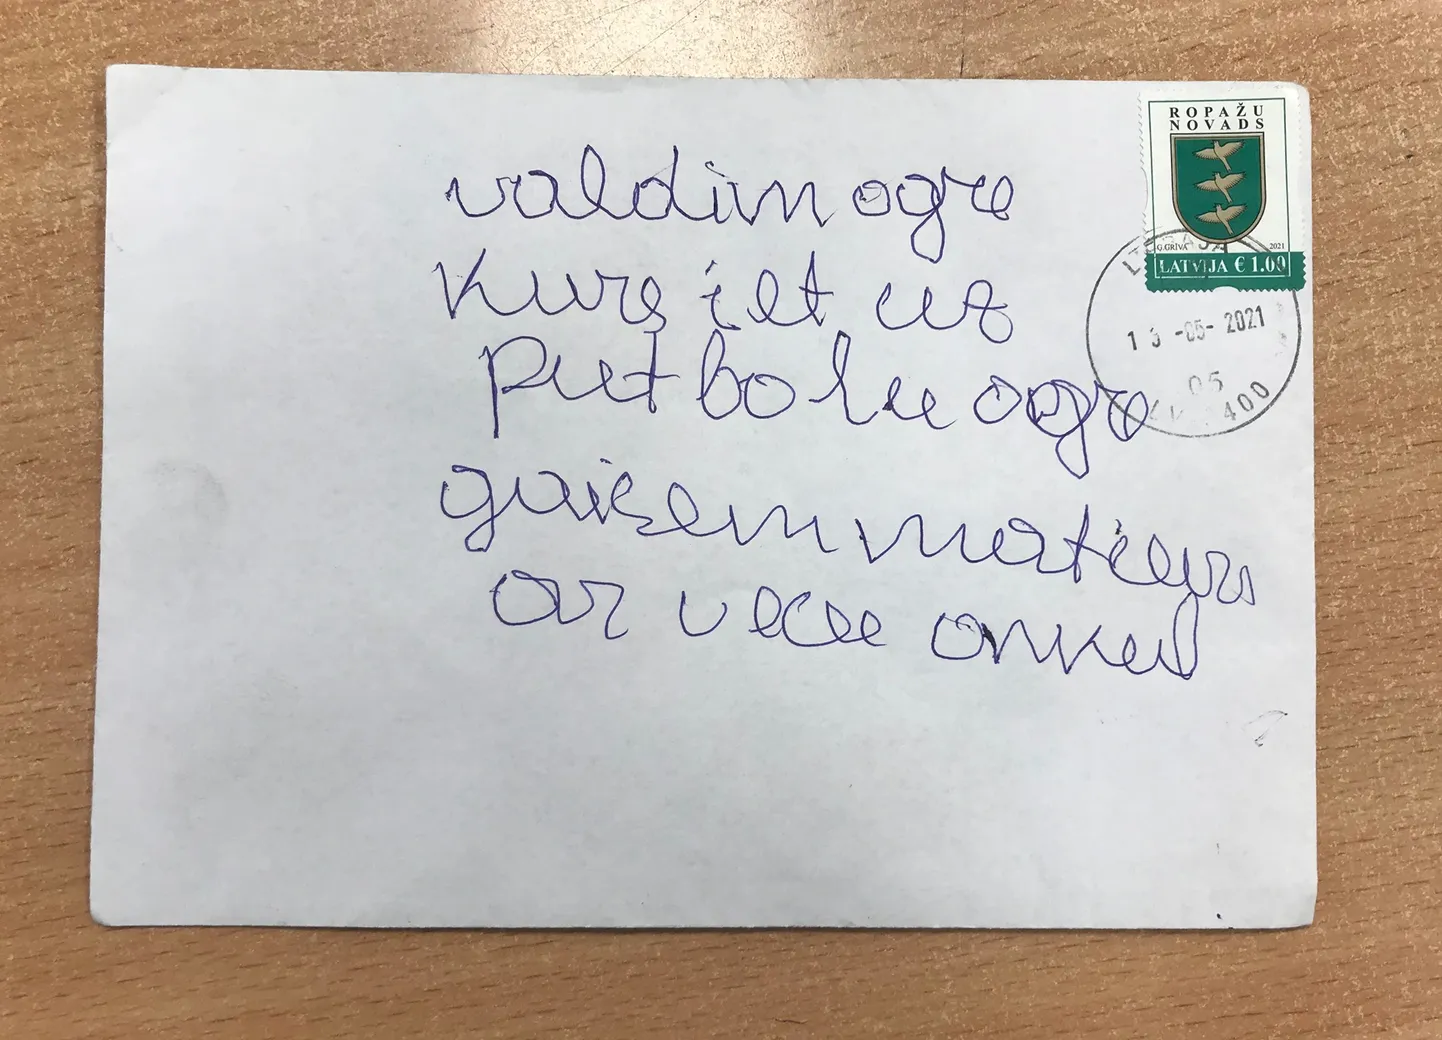 ROPAŽU
NOVADS
G.GRĪVA 2021
LATVIJA € 1.00
13 -05- 2021
05
400
valdim ogre
Kurš iet uz
Putbolu ogre
gaišem matiem
ar vecu onkul